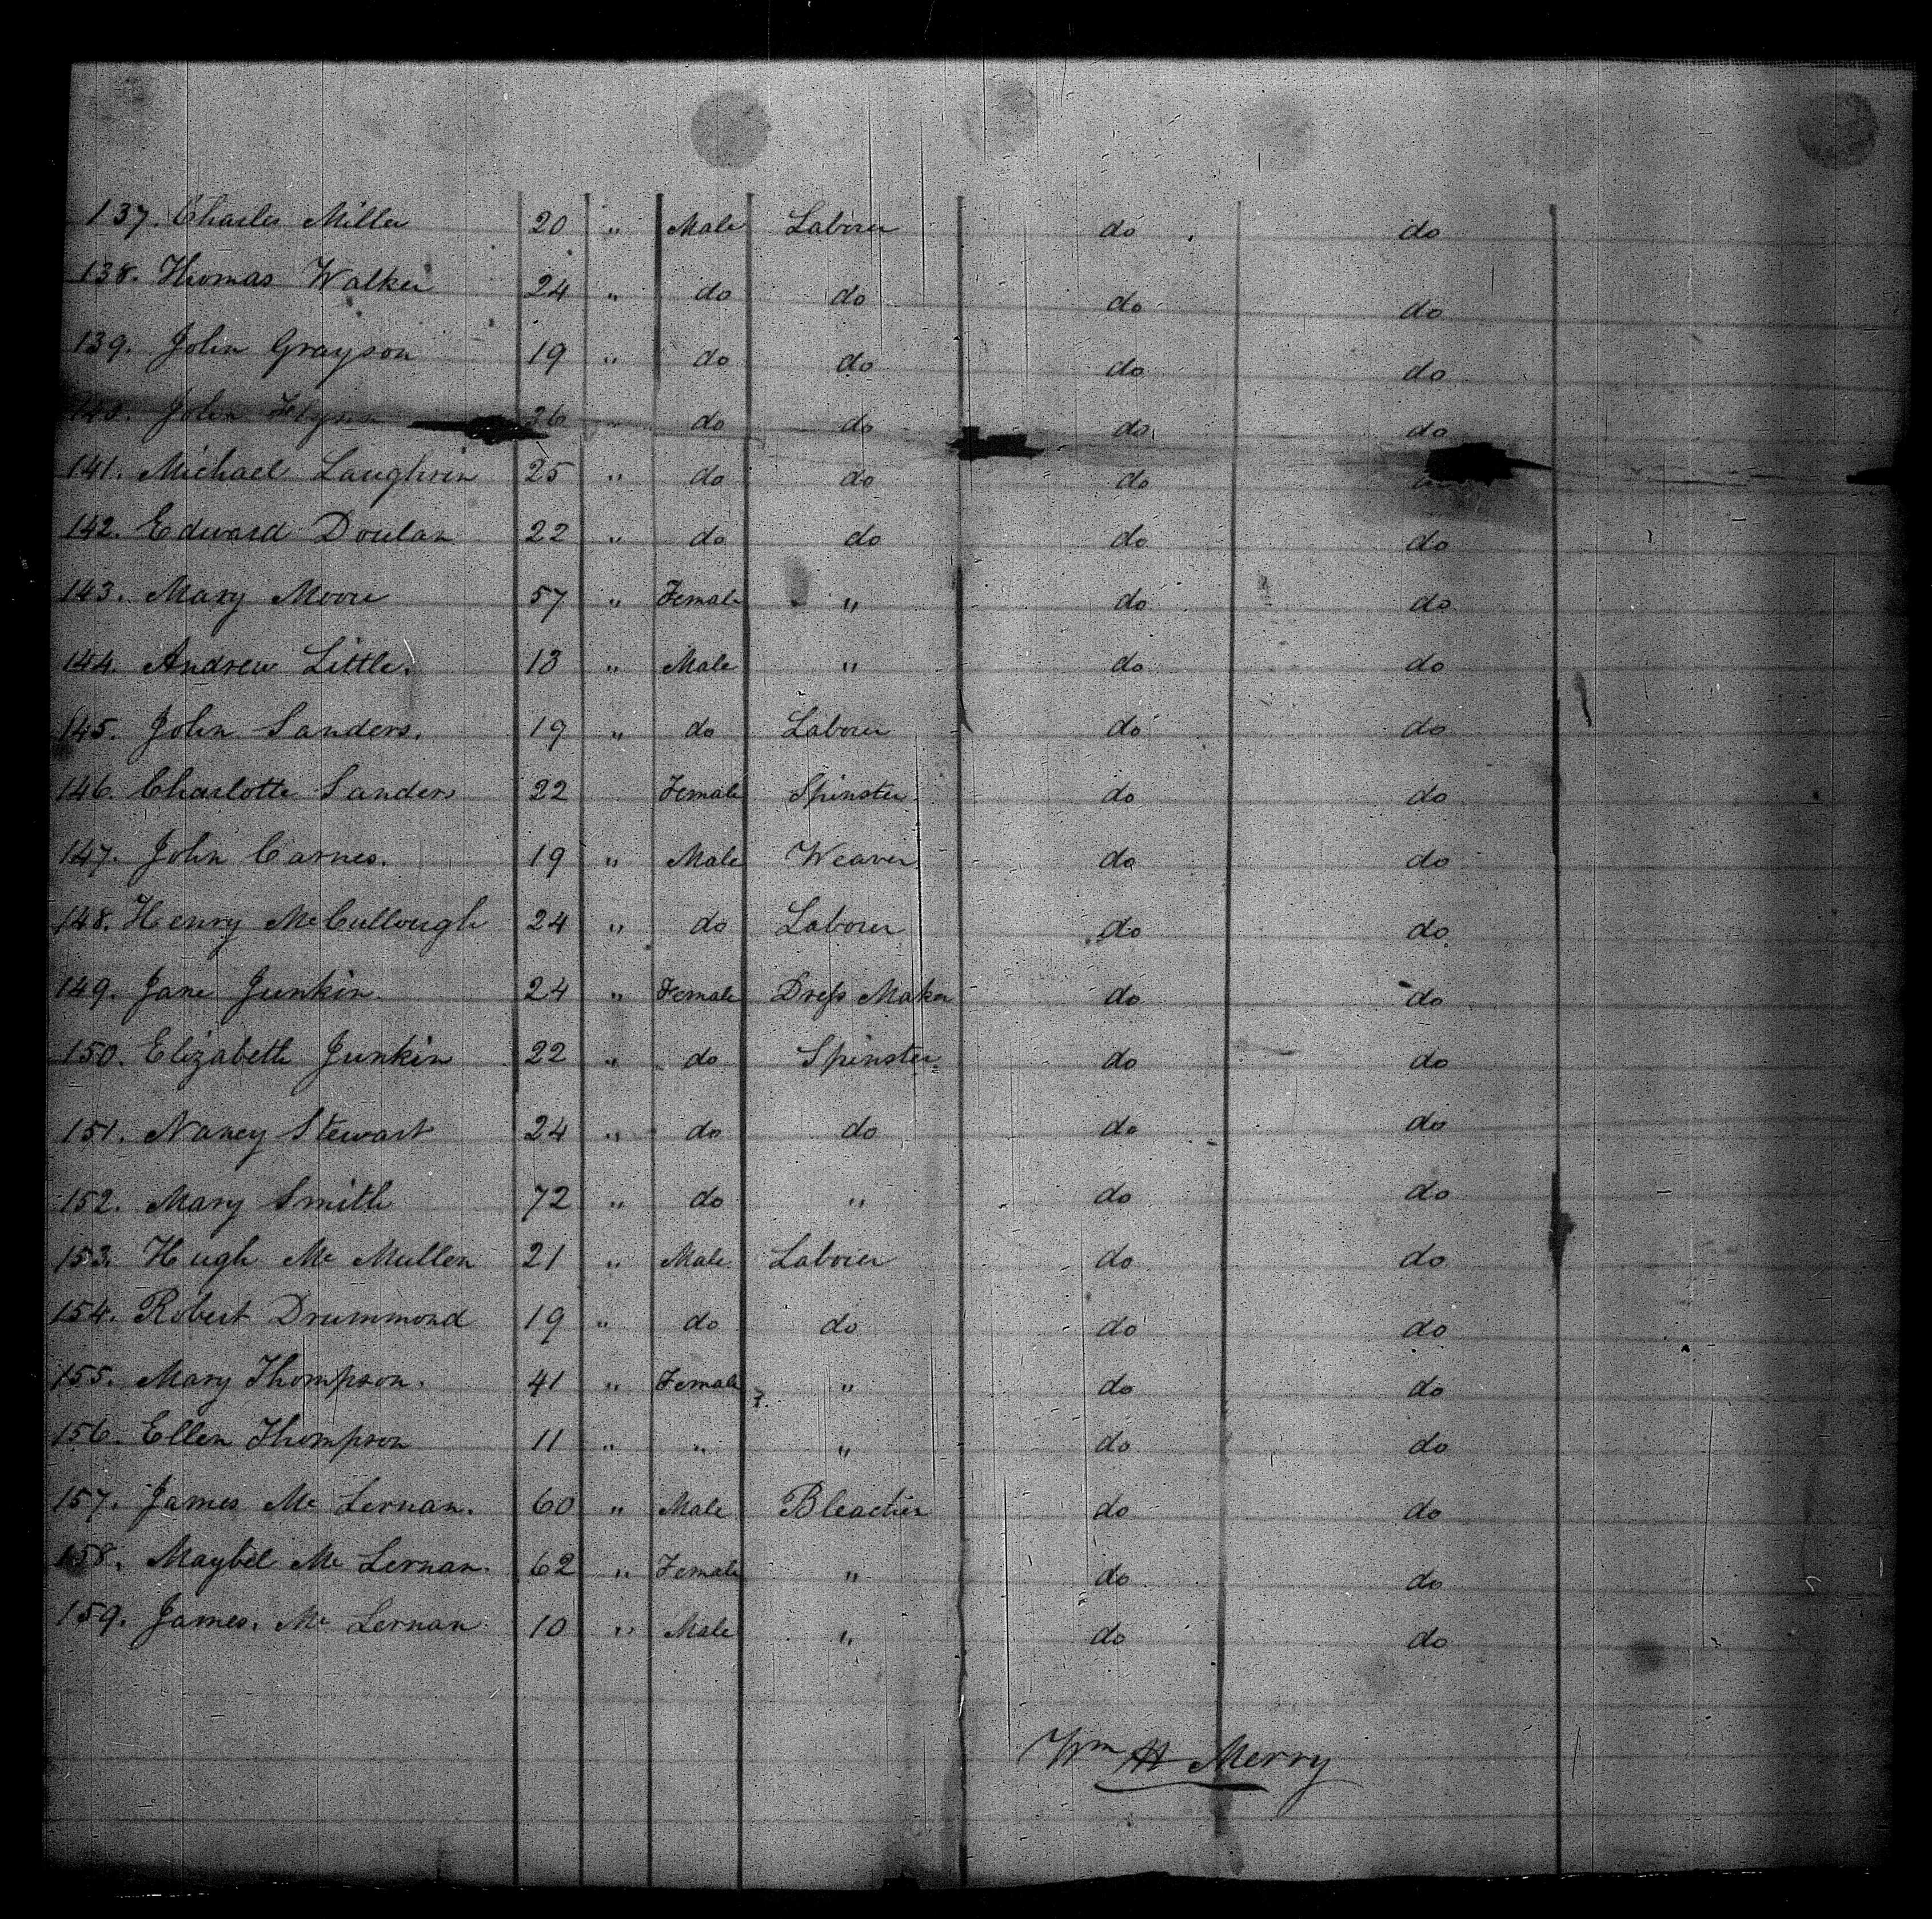 137. Charles Miller 20 " Male Laborer do do
138. Thomas Walker 24 " do do do do
139. John Grayson 19 " do do do do
140. John Flynn 26 " do do do do
141. Michael Laughren 25 " do do do
142. Edward Doulan 22 " do do do do
143. Mary Moore 57 " Female " do do
144. Andrew Little. 13 " Male " do do
145. John Sanders. 19 " do Laborer do do
146. Charlotte Sanders 22 Female Spinster do do
147. John Carnes. 19 " Male Weaver do do
148. Henry McCullough 24 " do Laborer do do
149. Jane Junkin. 24 " Female Dress Maker do do
150. Elizabeth Junkin 22 " do Spinster do do
151. Nancy Stewart 24 " do do do do
152. Mary Smith 72 " do " do do
153. Hugh Mc Mullen 21 " Male Laborer do do
154. Robert Drummond 19 " do do do do
155. Mary Thompson. 41 " Female " do do
156. Ellen Thompson 11 " " " do do
157. James Mc Lernan. 60 " Male Bleacher do do
158. Maybel Mc Lernan. 62 " Female " do do
159. James. Mc Lernan 10 " Male " do do
Wm H Merry